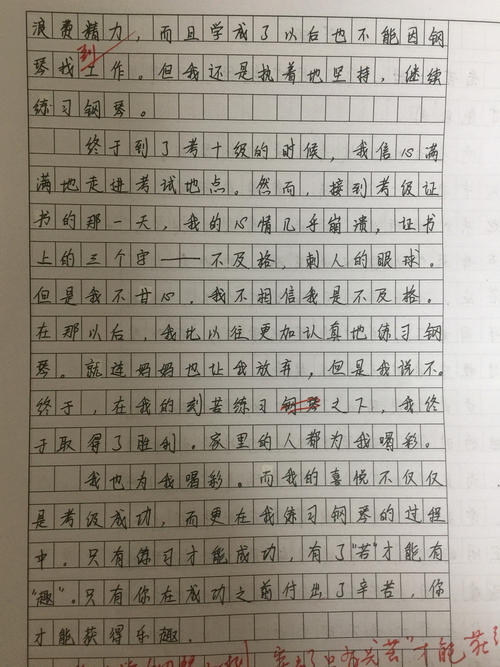 浪费精力，而且学成了以后也不能因钢
琴找到工作。但我还是执着地坚持，继续
练习钢琴。
终于到了考十级的时候，我信心满
满地走进考试地点。然而，接到考级证
书的那一天，我的心情几乎崩溃，证书
上的三个字——不及格，刺人的眼球。
但是我不甘心，我不相信我是不及格。
在那以后，我比以往更加认真地练习钢
琴。就连妈妈也让我放弃，但是我说不。
终于，在我的刻苦练习钢琴之下，我终
于取得了胜利。家里的人都为我喝彩。
我也为我喝彩。而我的喜悦不仅仅
是考级成功，而更在我练习钢琴的过程
中。只有练习才能成功，有了“苦”才能有
“趣”。只有你在成功之前付出了辛苦，你
才能获得乐趣。